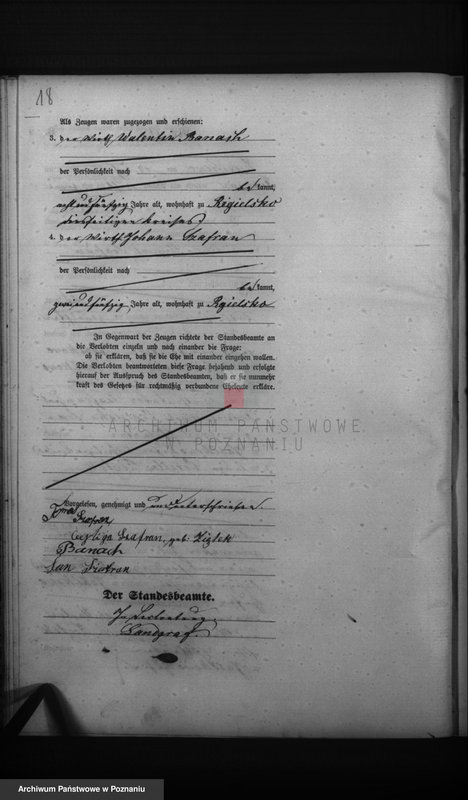 18
Als Zeugen waren zugezogen und erschienen:
3. der Wirth Valentin Banach
der Persönlichkeit nach
be kannt,
acht und fünfzig Jahre alt, wohnhaft zu Rgielsko
diesseitigen Kreises.
4. der Wirth Johann Szafran
der Persönlichkeit nach
be kannt,
zwei und fünfzig Jahre alt, wohnhaft zu Rgielsko
In Gegenwart der Zeugen richtete der Standesbeamte an
die Verlobten einzeln und nach einander die Frage:
ob sie erklären, daß sie die Ehe mit einander eingehen wollen.
Die Verlobten beantworteten diese Frage bejahend und erfolgte
hierauf der Ausspruch des Standesbeamten, daß er sie nunmehr
kraft des Gesetzes für rechtmäßig verbundene Eheleute erkläre.
ARCHIWUM PAŃSTWOWE
W POZNANIU
Vorgelesen, genehmigt und unterschrieben.
Szafran
Szafran, geb. Ziętek
Banach
Jan Szafran
Der Standesbeamte.
In Vertretung
Landgraf
Archiwum Państwowe w Poznaniu